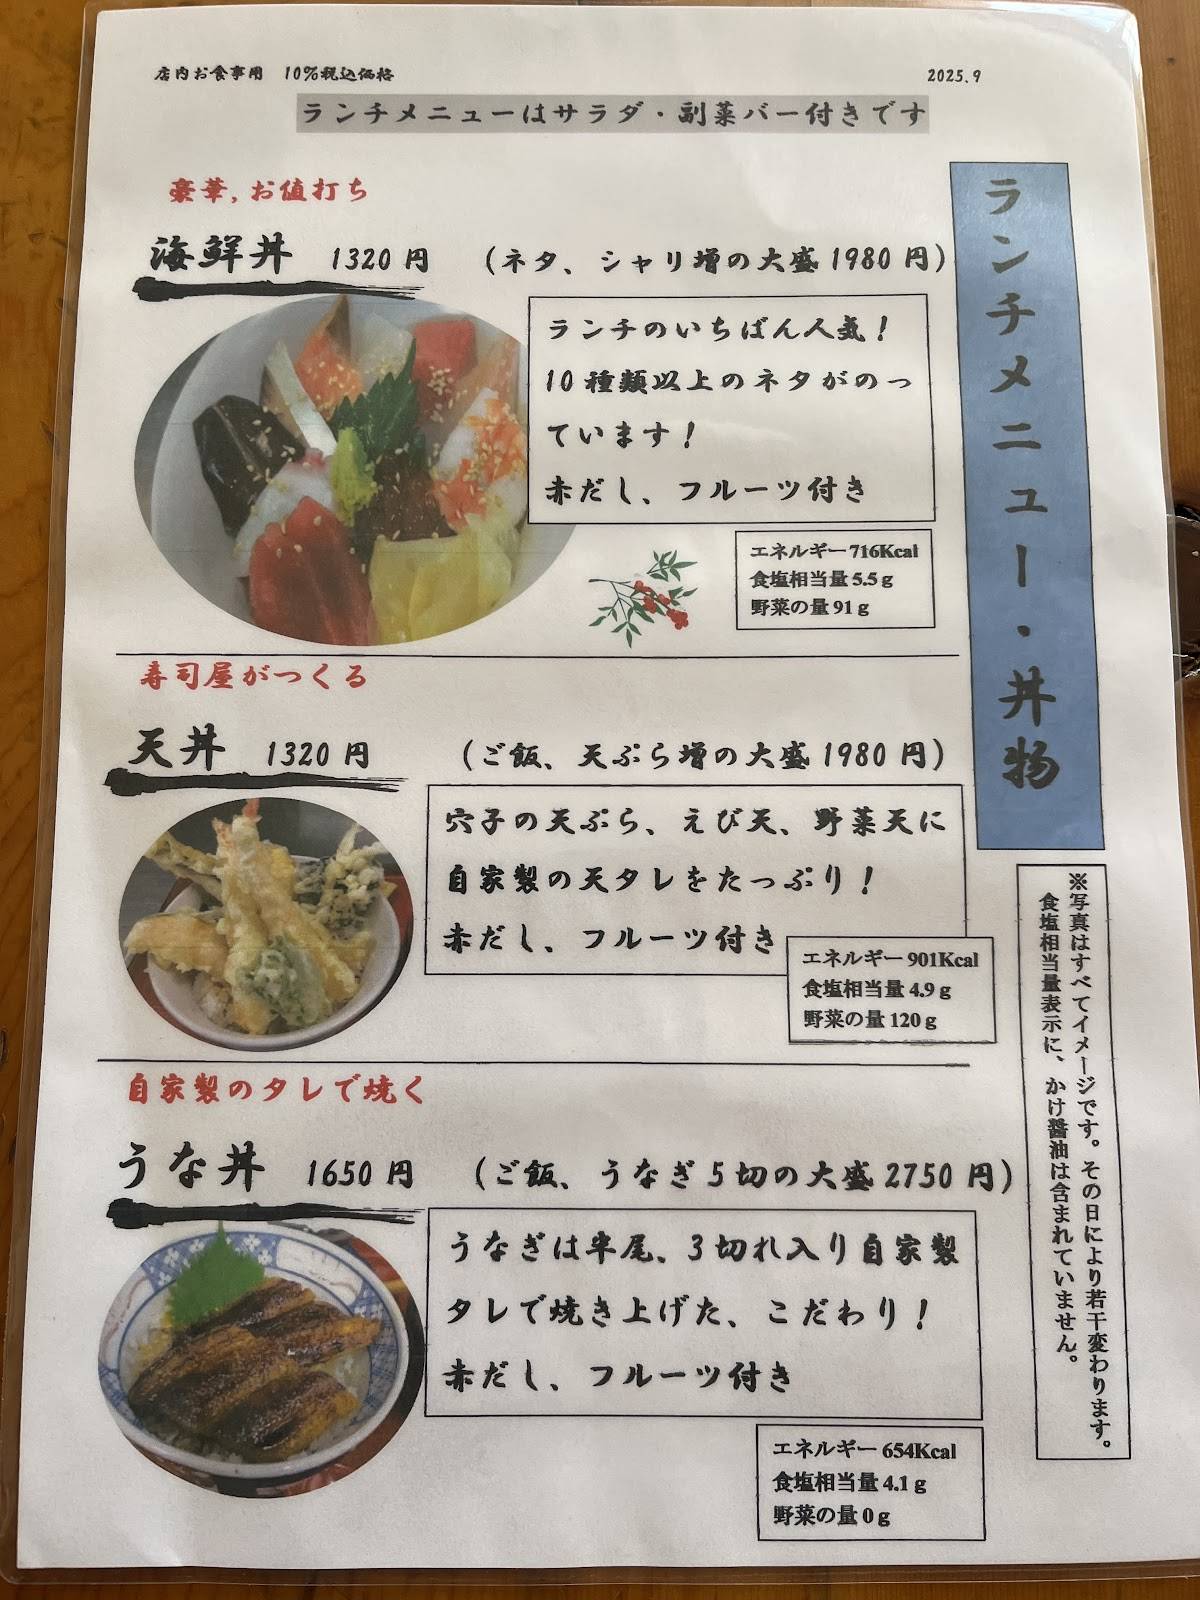 店内お食事用　10%税込価格
2025.9
ランチメニューはサラダ・副菜バー付きです
ランチメニュー・丼物
豪華,お値打ち
海鮮丼　1320円　（ネタ、シャリ増の大盛1980円）
ランチのいちばん人気！
10種類以上のネタがのっ
ています！
赤だし、フルーツ付き
エネルギー716Kcal
食塩相当量5.5g
野菜の量91g
寿司屋がつくる
天丼　1320円　（ご飯、天ぷら増の大盛1980円）
穴子の天ぷら、えび天、野菜天に
自家製の天タレをたっぷり！
赤だし、フルーツ付き
エネルギー901Kcal
食塩相当量4.9g
野菜の量120g
自家製のタレで焼く
うな丼　1650円　（ご飯、うなぎ5切の大盛2750円）
うなぎは半尾、3切れ入り自家製
タレで焼き上げた、こだわり！
赤だし、フルーツ付き
エネルギー654Kcal
食塩相当量4.1g
野菜の量0g
※写真はすべてイメージです。その日により若干変わります。
食塩相当量表示に、かけ醤油は含まれていません。